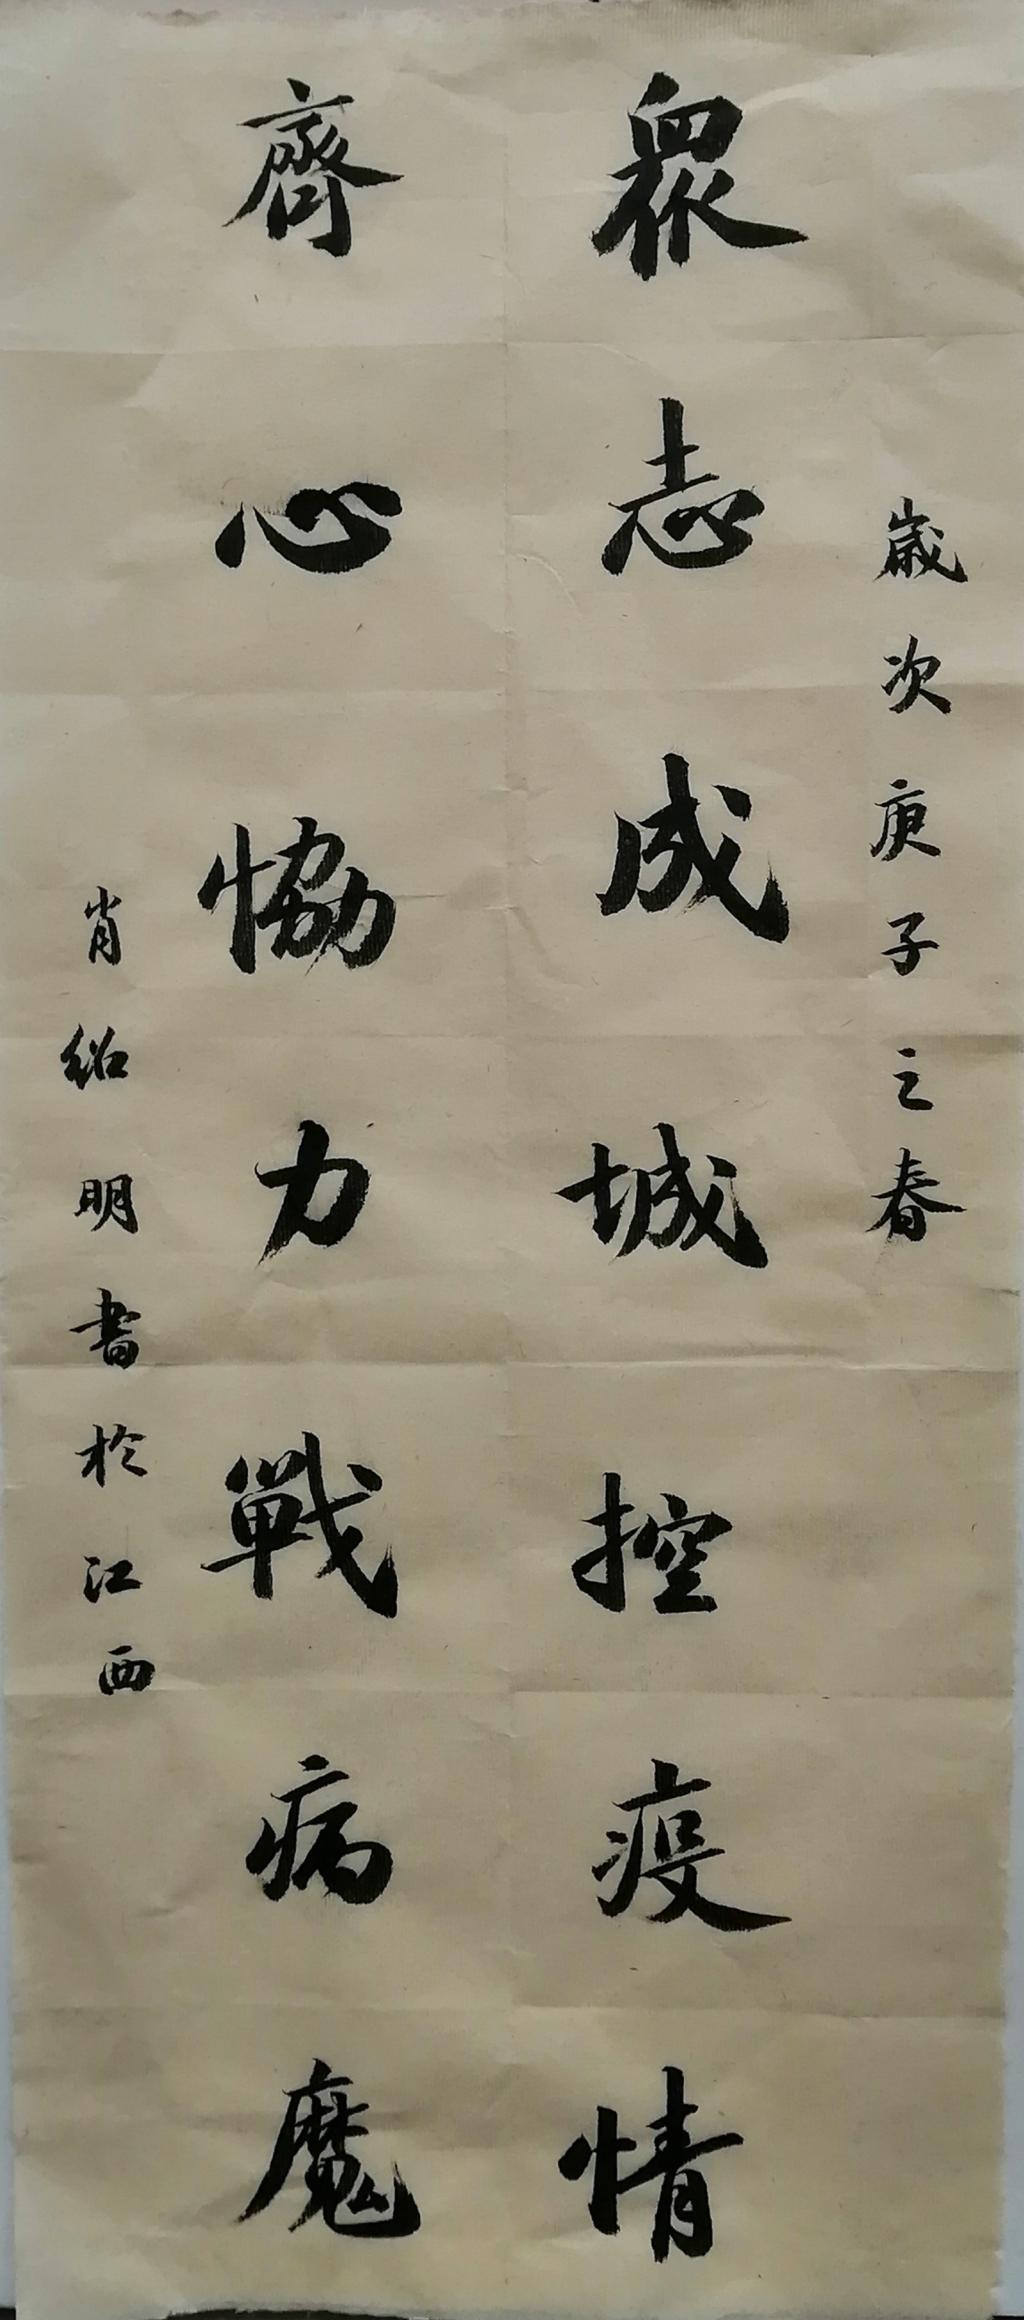 歲次庚子之春
眾志成城控疫情
齊心恊力戰病魔
肖紹明書於江西